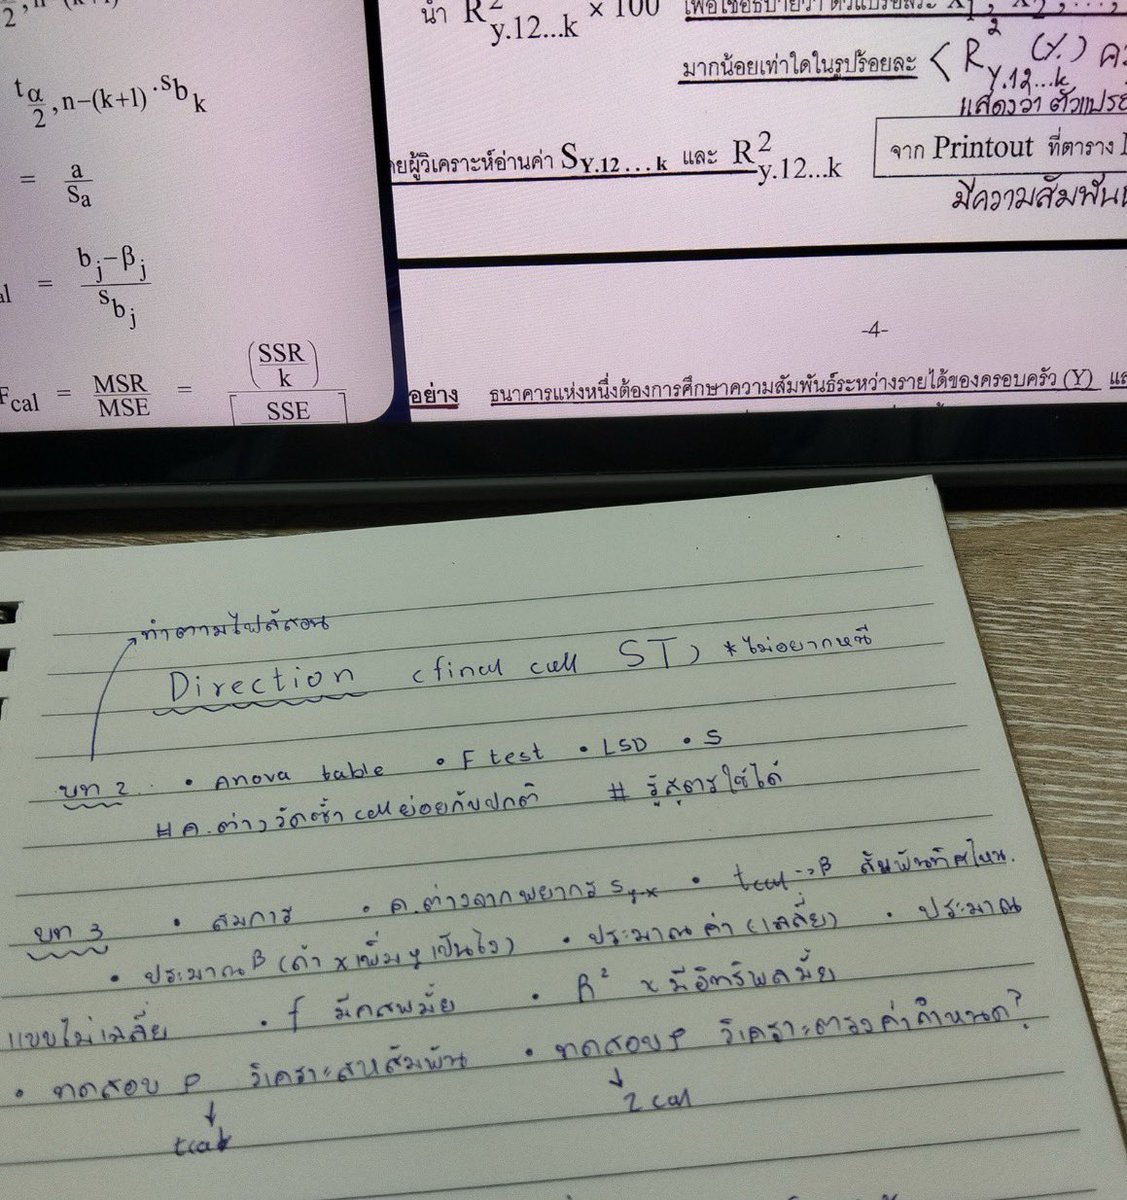 t α/2 , n−(k+1) · s b k
= a / Sa
= b j − β j / s b j
F cal = MSR / MSE = (SSR / k)
SSE
นำ R² y.12...k × 100
มากน้อยเท่าใดในรูปร้อยละ < R² Y.12...k (%)
แสดงว่า ตัวแปรอ
ผู้วิเคราะห์อ่านค่า S Y.12...k และ R² y.12...k
จาก Printout ที่ตาราง
มีความสัมพันธ
-4-
อย่าง ธนาคารแห่งหนึ่งต้องการศึกษาความสัมพันธ์ระหว่างรายได้ของครอบครัว (Y)
ทำตามไฟล์สอน
Direction (final call ST) *ไม่อยากหนี
บท 2 • Anova table • F test • LSD • S
# ค.ต่าง วัดซ้ำ cell ย่อยกับปกติ # รู้สูตรใช้ได้
บท 3 • สมการ • ค.ต่างจากพยากร S y.x • tcal --> β สัมพันทิศไหน.
• ประมาณ β (ถ้า x เพิ่ม y เป็นไง) • ประมาณ ค่า (เฉลี่ย) • ประมาณ
แบบไม่เฉลี่ย • f มีคสพมั้ย • R² x มีอิทธิพลมั้ย
• ทดสอบ ρ วิเคราะสหสัมพัน • ทดสอบ ρ วิเคราะตรงค่ากำหนด?
↓ tcal
↓ Z cal